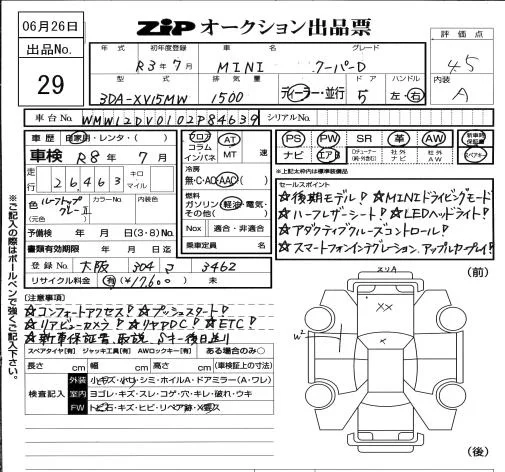 06月26日
ZiP オークション出品票
出品No.
29
評価点
4.5
内装
A
年式 初年度登録 車名 グレード
R3年7月 MINI クーパーD
型式 排気量 ディーラー・並行 ドア ハンドル
3DA-XV15MW 1500 5 左・右
車台No. WMW12DV0102P84639 シリアルNo.
車歴 自家用・レンタ・( )
車検 R8年7月
走行 26,463 キロ マイル
色 ルーフトップグレーⅡ カラーNo. 内装色
(元色)
予備検 年 月 日(3・8)No.
書類有効期限 年 月 日迄
登録No. 大阪 304 さ 3462
リサイクル料金 (有)(¥17,600) 未
フロア コラム インパネ
AT MT 速
冷房
無・C・AD・AAC( )
燃料
ガソリン・軽油・電気・その他( )
Nox 適合・非適合
乗車定員 名
PS PW SR 革 AW 新車時保証書
ナビ エアB TVチューナー(純・外含む) 社外ナビ 社外AW スペアキー
※上記太枠内は標準装備品
セールスポイント
☆後期モデル! ☆MINIドライビングモード
☆ハーフレザーシート! ☆LEDヘッドライト!
☆アダクティブクルーズコントロール!
☆スマートフォンインテグレクション、アップルカープレイ!
(注意事項)
☆コンフォートアクセス! ☆プッシュスタート!
☆リアビューカメラ! ☆リヤPDC! ☆ETC!
☆新車保証書、取説、Sキー後日送り
スペアタイヤ[有] ジャッキ工具[有] AWロックキー[有] ある場合のみ○
長さ cm 幅 cm 高さ cm (車検証上の寸法)
検査記入
外装 小キズ・小凹・シミ・ホイルA・ドアミラー(A・ワレ)
室内 ヨゴレ・キズ・スレ・コゲ・穴・キレ・破れ・ウキ
FW トビ石・キズ・ヒビ・リペア跡・X要ス
※ご記入の際はボールペンで強くご記入下さい。
(前)
リA
XX
X
W²
(後)